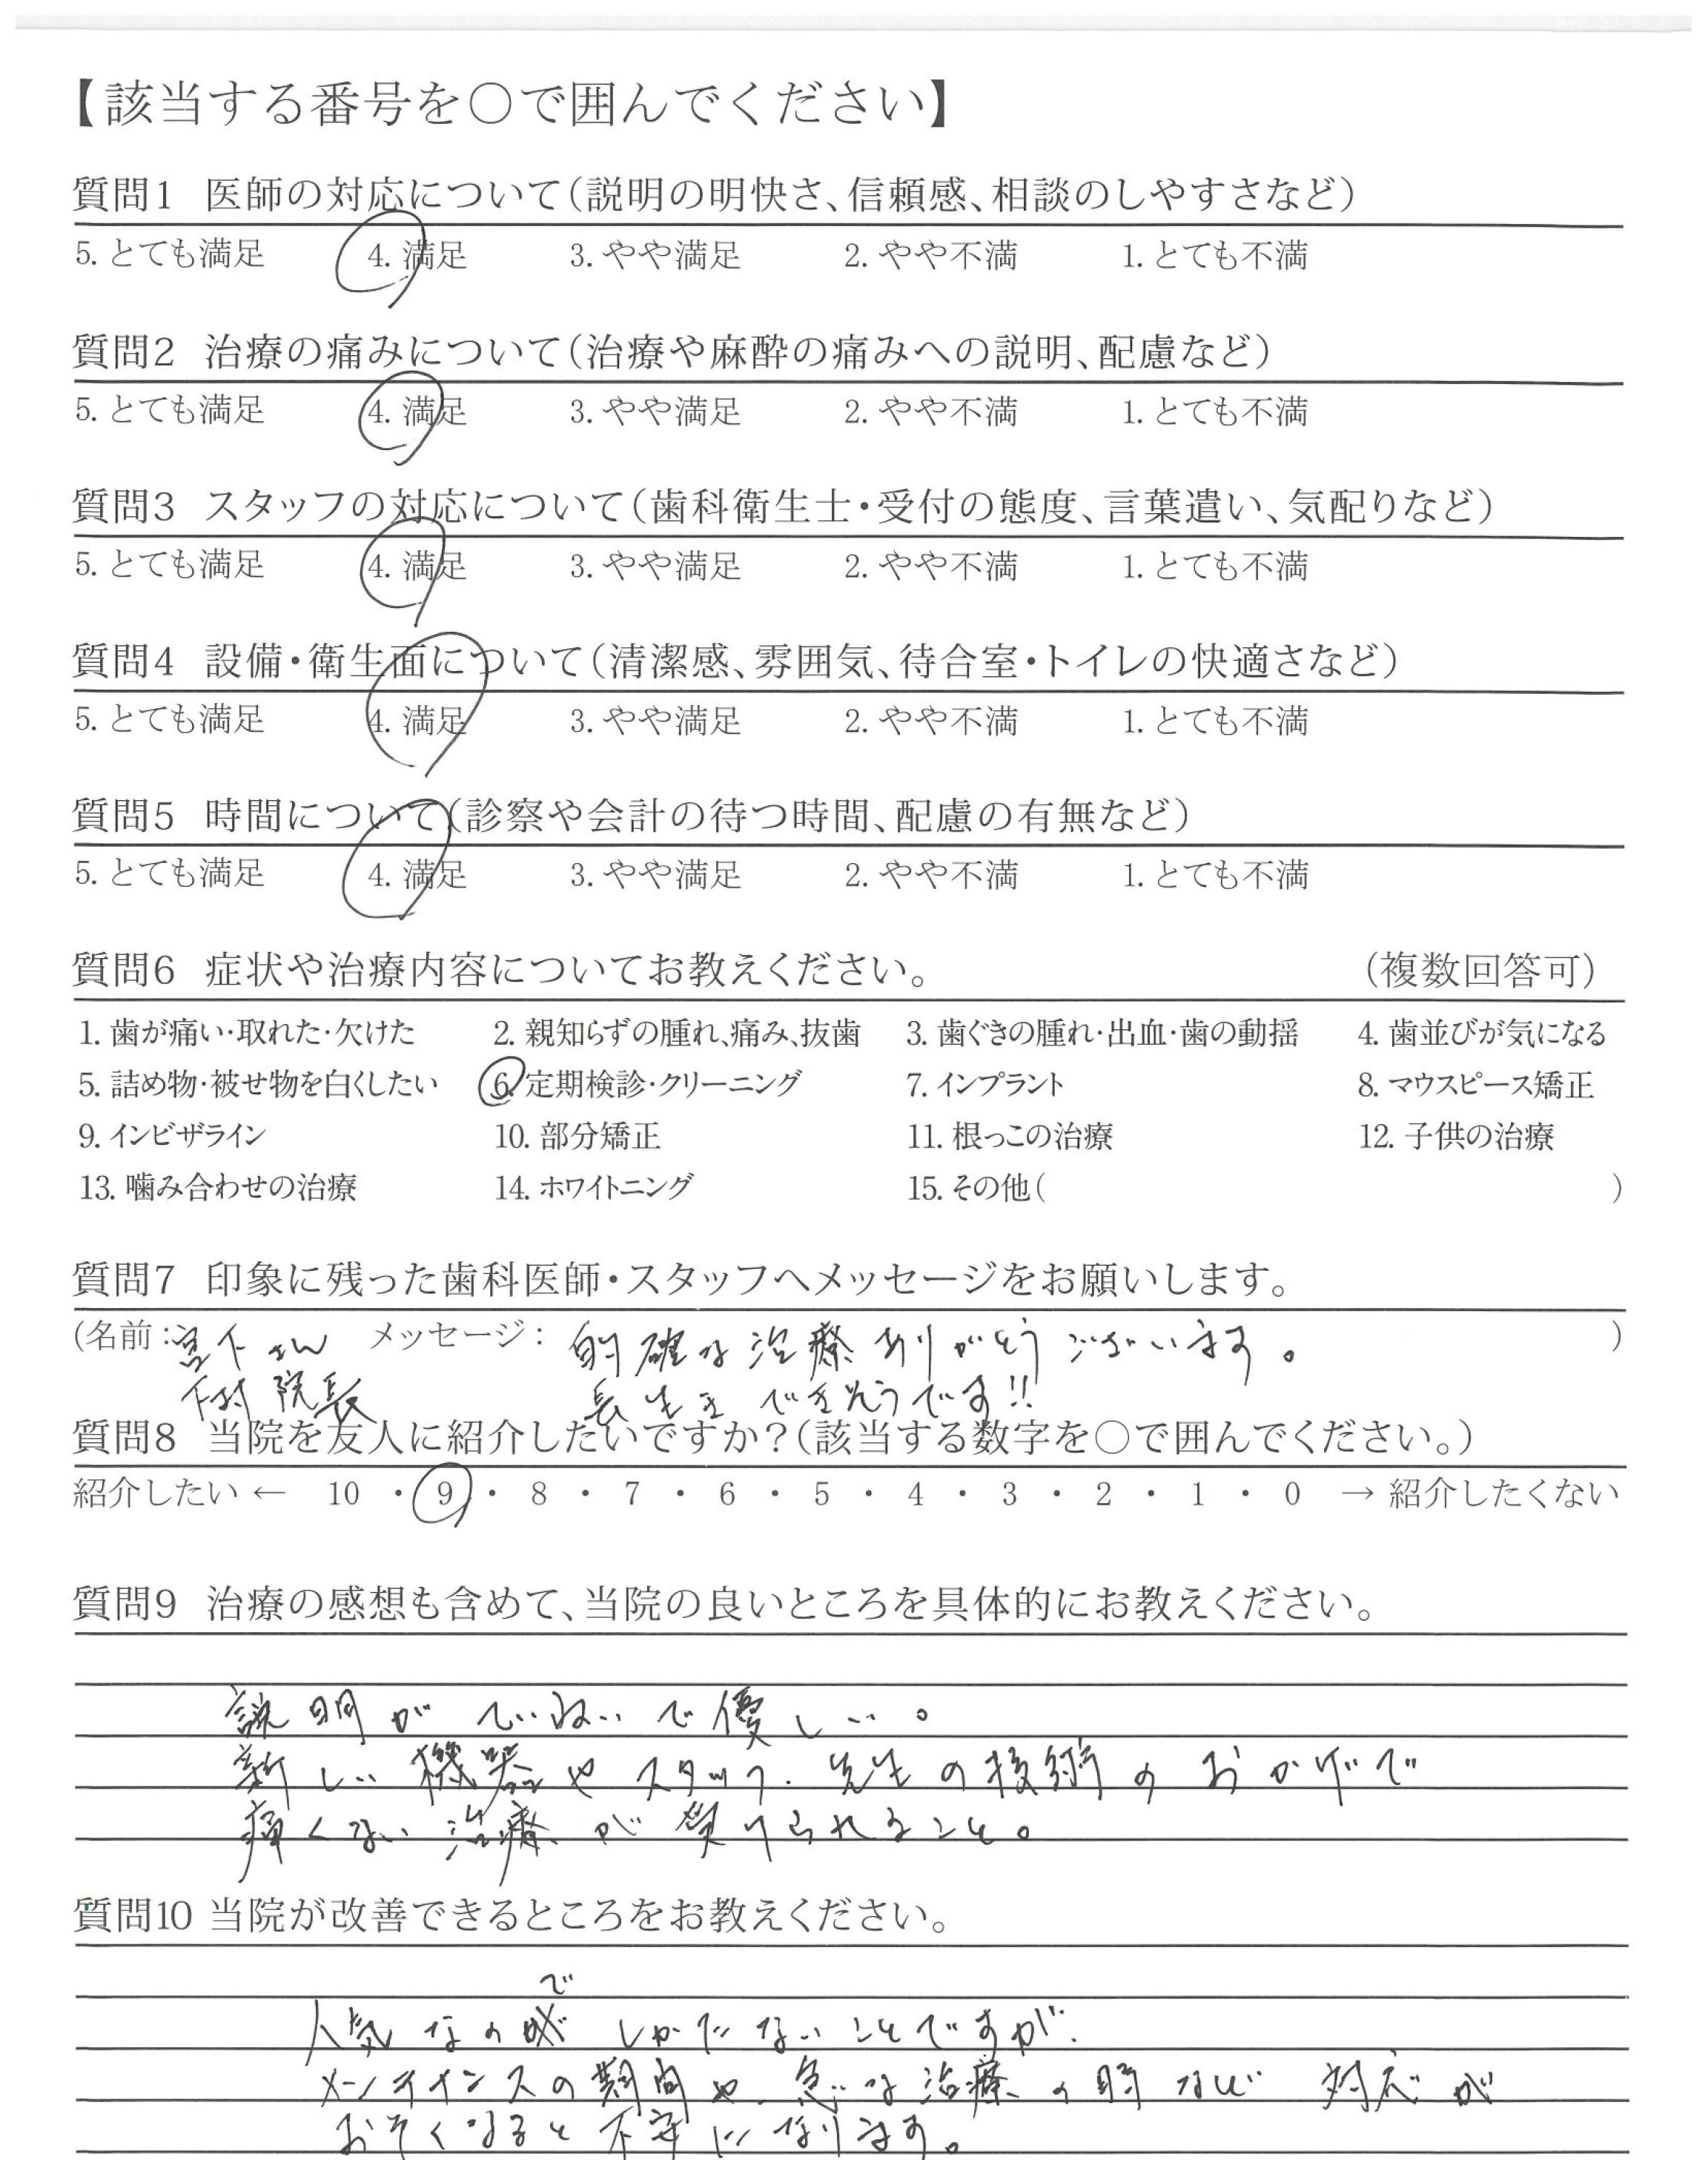 【該当する番号を○で囲んでください】
質問1 医師の対応について(説明の明快さ、信頼感、相談のしやすさなど)
5. とても満足 4. 満足 3. やや満足 2. やや不満 1. とても不満
質問2 治療の痛みについて(治療や麻酔の痛みへの説明、配慮など)
5. とても満足 4. 満足 3. やや満足 2. やや不満 1. とても不満
質問3 スタッフの対応について(歯科衛生士・受付の態度、言葉遣い、気配りなど)
5. とても満足 4. 満足 3. やや満足 2. やや不満 1. とても不満
質問4 設備・衛生面について(清潔感、雰囲気、待合室・トイレの快適さなど)
5. とても満足 4. 満足 3. やや満足 2. やや不満 1. とても不満
質問5 時間について(診察や会計の待つ時間、配慮の有無など)
5. とても満足 4. 満足 3. やや満足 2. やや不満 1. とても不満
質問6 症状や治療内容についてお教えください。 (複数回答可)
1. 歯が痛い・取れた・欠けた 2. 親知らずの腫れ、痛み、抜歯 3. 歯ぐきの腫れ・出血・歯の動揺 4. 歯並びが気になる
5. 詰め物・被せ物を白くしたい 6. 定期検診・クリーニング 7. インプラント 8. マウスピース矯正
9. インビザライン 10. 部分矯正 11. 根っこの治療 12. 子供の治療
13. 噛み合わせの治療 14. ホワイトニング 15. その他( )
質問7 印象に残った歯科医師・スタッフへメッセージをお願いします。
(名前:宮下さん メッセージ: 的確な治療ありがとうございます。 )
下村院長 長生きできそうです!!
質問8 当院を友人に紹介したいですか?(該当する数字を○で囲んでください。)
紹介したい ← 10 ・ 9 ・ 8 ・ 7 ・ 6 ・ 5 ・ 4 ・ 3 ・ 2 ・ 1 ・ 0 → 紹介したくない
質問9 治療の感想も含めて、当院の良いところを具体的にお教えください。
説明がていねいで優しい。
新しい機器やスタッフ、先生の技術のおかげで
痛くない治療が受けられること。
質問10 当院が改善できるところをお教えください。
人気なので しかたないことですが、
メンテナンスの期間や、急な治療の時など 対応が
おそくなると不安になります。